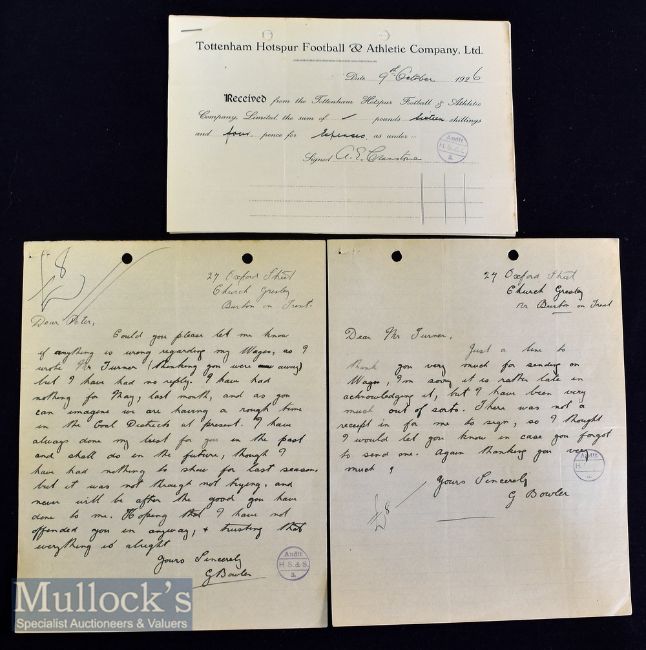 Tottenham Hotspur Football & Athletic Company, Ltd.
Date 9th October 1926
Received from the Tottenham Hotspur Football & Athletic
Company, Limited the sum of - pounds sixteen shillings
and four pence for Expenses as under-
Signed A. E.
Audit
27 Oxford Street
Church Gresley
Burton on Trent.
Dear Peter,
Could you please let me know
if anything is wrong regarding my Wages, as I
wrote Mr Turner (thinking you were away)
but I have had no reply. I have had
nothing for May, last month, and as you
can imagine we are having a rough time
in the Coal Districts at present. I have
always done my best for you in the past
and shall do in the future, though I
have had nothing to shew for last season,
but it was not through not trying, and
never will be after the good you have
done to me. Hoping that I have not
offended you in anyway, & trusting that
everything is alright
Yours Sincerely
G Bowler
Audit
H. S. & S.
3.
27 Oxford Street
Church Gresley
Nr Burton on Trent
Dear Mr Turner,
Just a line to
thank you very much for sending on
Wages, I'm sorry it is rather late in
acknowledging it, but I have been very
much out of sorts. There was not a
receipt in for me to sign, so I thought
I would let you know in case you forgot
to send one. Again thanking you very
much
Yours Sincerely
G Bowler
Audit
Mullock's
Specialist Auctioneers & Valuers